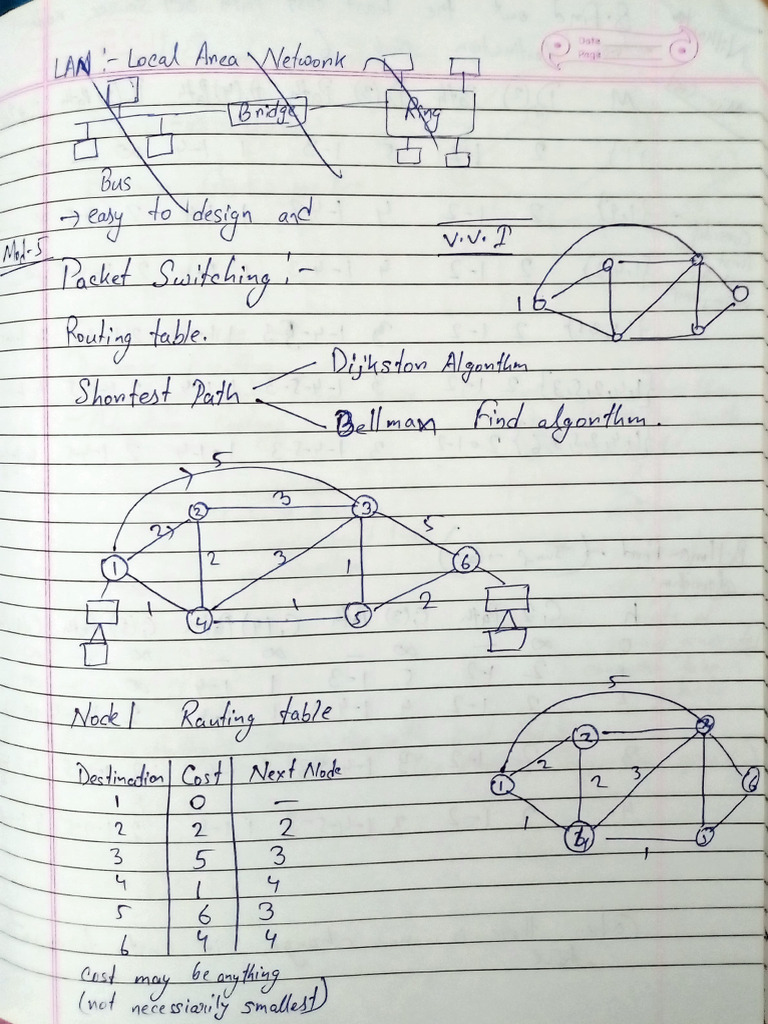 Date
Page
LAN :- Local Area Network
Bridge
Ring
Bus
→ easy to design and
V.V.I
Mod-5
Packet Switching :-
1
Routing table.
Shortest Path
Dijkston Algorithm
Bellman Find algorithm.
5
2 3 3
2 5
1 2 3 1 6
1 4 1 5 2
Node 1 Routing table
5
Destination | Cost | Next Node
1 | 0 | —
2 | 2 | 2
3 | 5 | 3
4 | 1 | 4
5 | 6 | 3
6 | 4 | 4
2
1 2 2 3 6
1 1 5
Cost may be anything
(not necessiarily smallest)